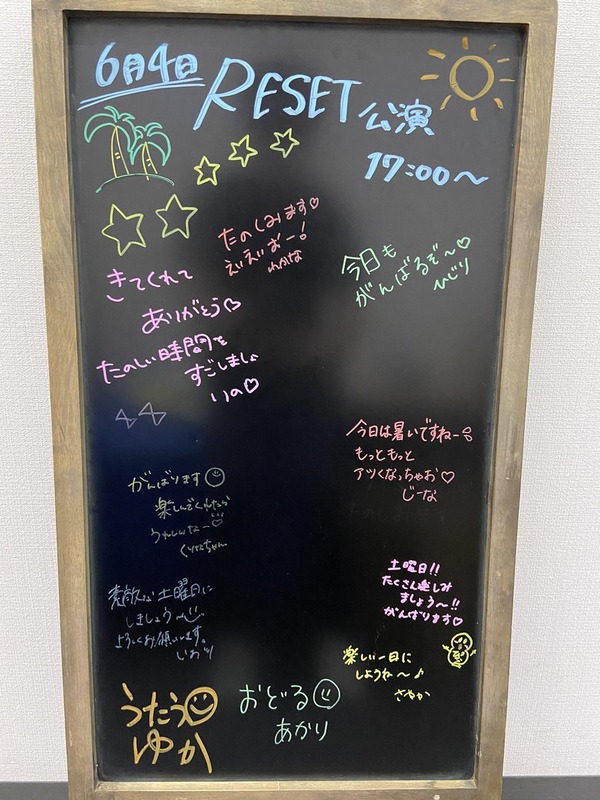 6月4日
RESET公演
17:00〜
たのしみます♡
えいえいおー！
わかな
今日も
がんばるぞ〜♡
ひじり
きてくれて
ありがとう♡
たのしい時間を
すごしましょ
いの♡
今日は暑いですねー
もっともっと
アツくなっちゃお♡
じーな
がんばります☺
楽しんでくれたら
うれしいなー♡
くりちゃん
素敵な土曜日に
しましょう〜
よろしくお願いします。
いおり
土曜日!!
たくさん楽しみ
ましょう〜!!
がんばります♡
楽しい一日に
しようね〜♪
さやか
うたう☺
ゆか
おどる☺
あかり